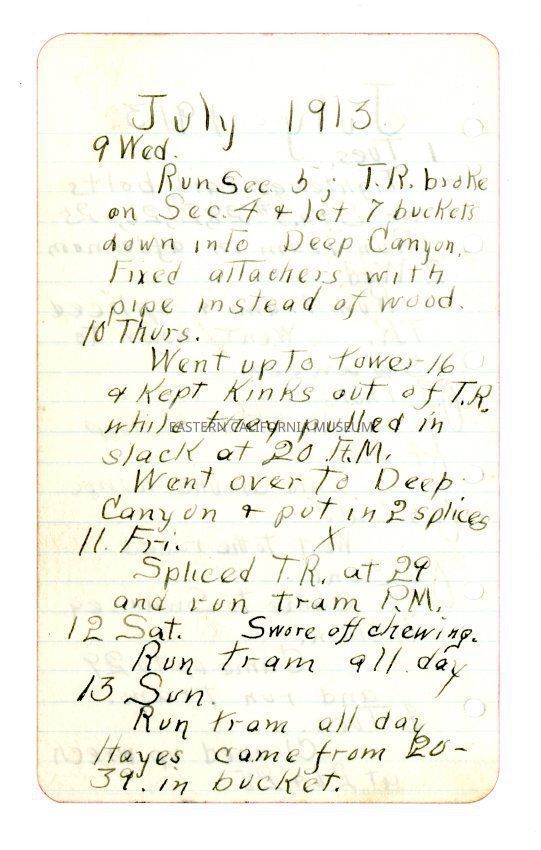 July 1913
9 Wed.
Run Sec. 5; T.R. broke
on Sec. 4 & let 7 buckets
down into Deep Canyon,
Fixed attachers with
pipe instead of wood.
10 Thurs.
Went up to tower 16
& kept kinks out of T.R.
while they pulled in
EASTERN CALIFORNIA MUSEUM
slack at 20 A.M.
Went over to Deep
Canyon & put in 2 splices
11. Fri. X
Spliced T.R. at 29
and run tram P.M.
12 Sat. Swore off chewing.
Run tram all day
13 Sun.
Run tram all day
Hayes came from 20-
39. in bucket.